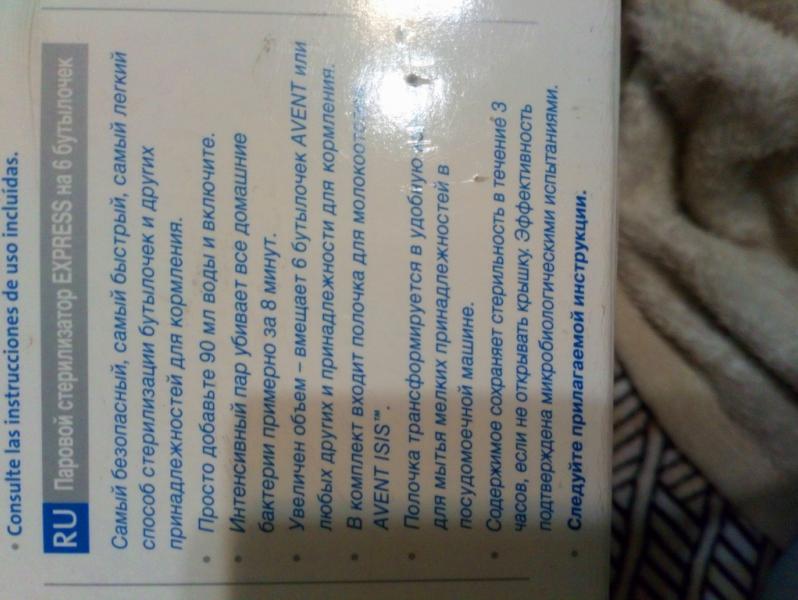 • Consulte las instrucciones de uso incluidas.
RU Паровой стерилизатор EXPRESS на 6 бутылочек
Самый безопасный, самый быстрый, самый легкий
способ стерилизации бутылочек и других
принадлежностей для кормления.
• Просто добавьте 90 мл воды и включите.
• Интенсивный пар убивает все домашние
бактерии примерно за 8 минут.
• Увеличен объем – вмещает 6 бутылочек AVENT или
любых других и принадлежности для кормления.
• В комплект входит полочка для
AVENT ISIS™.
• Полочка трансформируется в
для мытья мелких принадлежностей в
посудомоечной машине.
• Содержимое сохраняет стерильность в течение 3
часов, если не открывать крышку. Эффективность
подтверждена микробиологическими испытаниями.
• Следуйте прилагаемой инструкции.